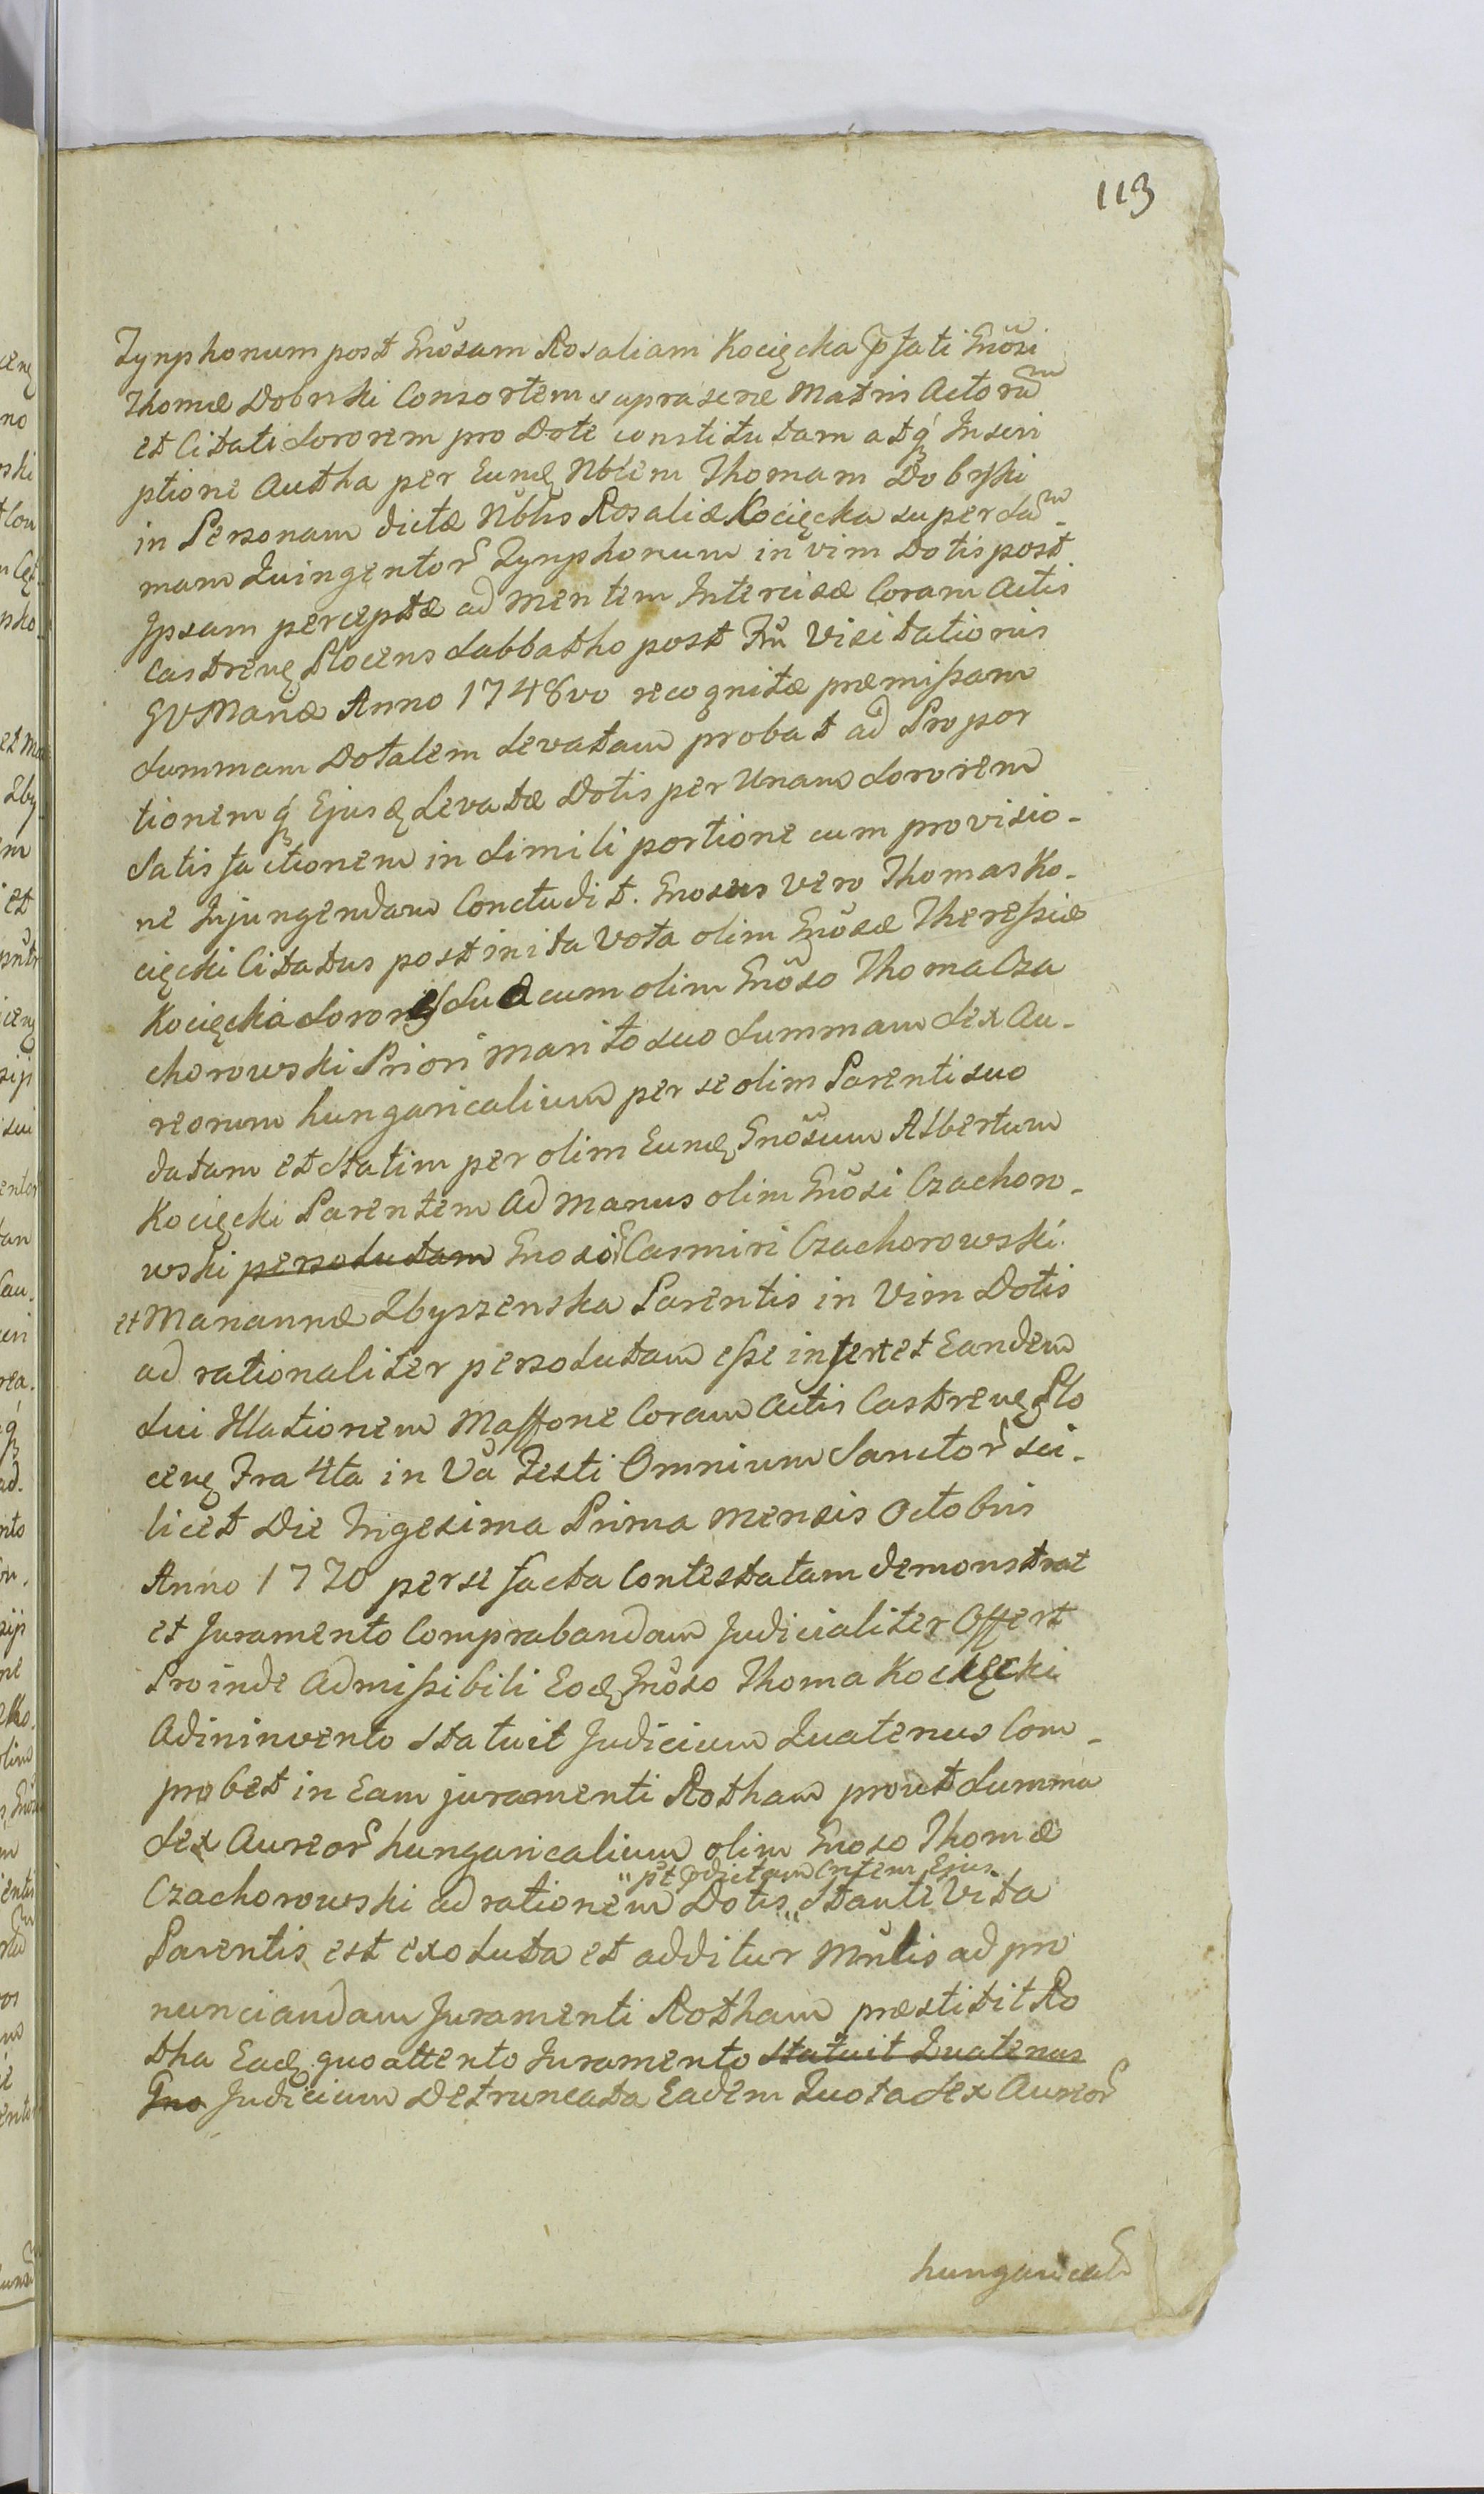 113
Tynphonum post Gnosam Rosaliam Kocięcka pfati Gnosi
Thomæ Dobrski Consortem suprascræ Matris Actorum
et Citati Sororem pro Dote constitutam atq Inscri
ptione Autha per Eund Nblem Thomam Dobrski
in Personam dictæ Nblis Rosaliæ Kocięcka super Sum-
mam Quingentor Tynphonum in vim Dotis post
Ipsam perceptæ ad mentem Intercisæ Coram Actis
Castren Plocens Sabbatho post Ftu Visitationis
GVMariæ Anno 1748vo recognitæ præmissam
Summam Dotalem Levatam probat ad Propor
tionemq Ejusd Levatæ Dotis per Unam Sororem
Satisfactionem in Simili portione cum provisio-
ne Injungendam Concludit. Gnosus vero Thomas Ko-
cięcki Citatus post inita Vota olim Gnosæ Theressiæ
Kocięcka Sororis Suæ cum olim Gnoso Thoma Cza
chorowski Priori Marito suo Summam Sex Au-
reorum hungaricalium per se olim Parenti suo
datam et Statim per olim Eund Gnosum Albertum
Kocięcki Parentem ad manus olim Gnosi Czachoro-
wski persolutam Gnosor Casmiri Czachorowski
et Mariannæ Zbyszenska Parentis in Vim Dotis
ad rationaliter persolutam esse infert et Eandem
Sui Illationem Maffone Coram Actis Castren Plo
cen Fra 4ta in Va Festi Omnium Sanctor sci-
licet Die Trigesima Prima mensis Octobris
Anno 1770 per se facta Contestatam demonstrat
et Juramento Comprabandam Judicialiter Offert
Proinde Admissibili Eod Gnoso Thoma Kocięcki
Adininvento Statuit Judicium Quatenus Com-
probet in Eam juramenti Rotham prout Summa
Sex Aureor hungaricalium olim Gnoso Thomæ
pt pdictam Ontem Ejus
Czachorowski ad rationem Dotis Stante Vita
Parentis est exoluta et additur Mnlis ad pro
nunciandam Juramenti Rotham præstitit Ro
tha Ead quo attento Juramento Statuit Quatenus
Gno Judicium Detruncata Eadem Quota Sex Aureor
hungarical